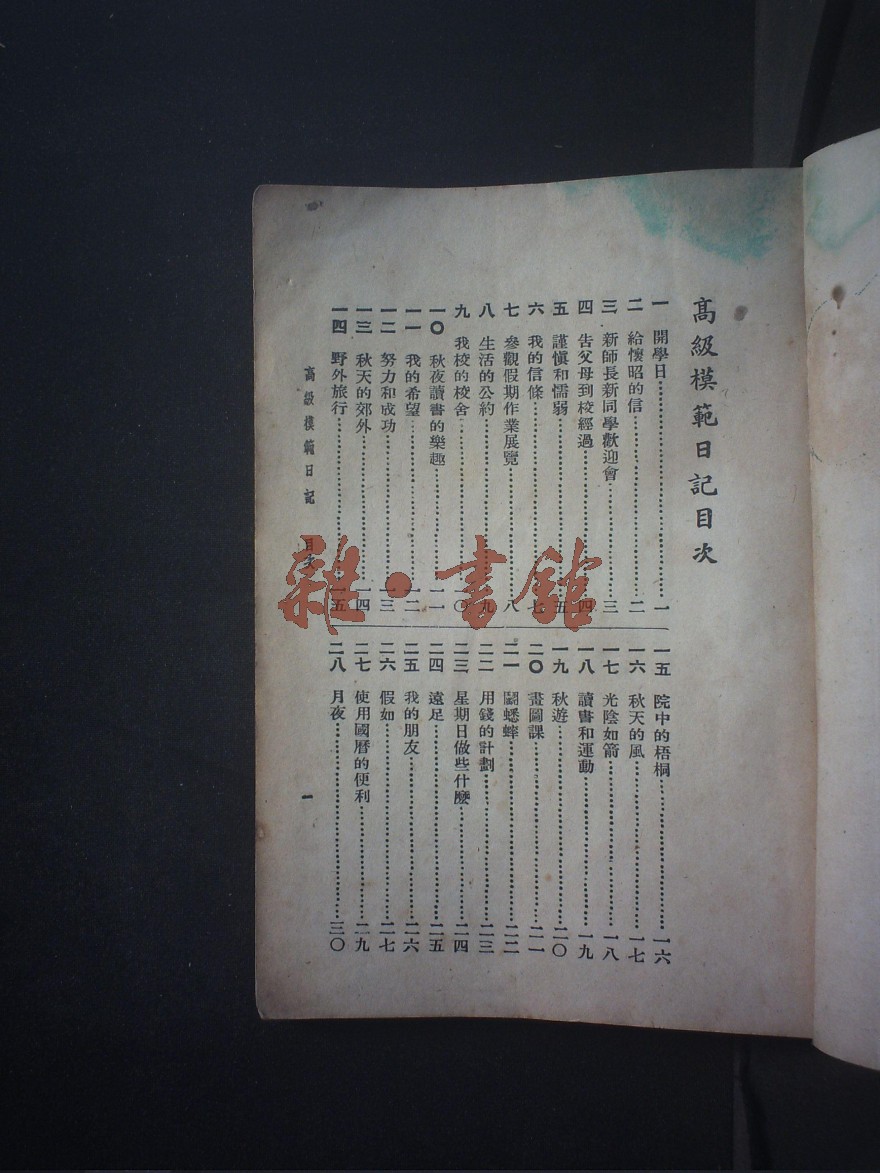 高級模範日記目次
一 開學日……一
二 給懷昭的信……二
三 新師長新同學歡迎會……三
四 告父母到校經過……四
五 謹愼和懦弱……五
六 我的信條……七
七 參觀假期作業展覽……八
八 生活的公約……九
九 我校的校舍……一〇
一〇 秋夜讀書的樂趣……一一
一一 我的希望……一二
一二 努力和成功……一三
一三 秋天的郊外……一四
一四 野外旅行……一五
一五 院中的梧桐……一六
一六 秋天的風……一七
一七 光陰如箭……一八
一八 讀書和運動……一九
一九 秋遊……二〇
二〇 畫圖課……二一
二一 鬬蟋蟀……二二
二二 用錢的計劃……二三
二三 星期日做些什麼……二四
二四 遠足……二五
二五 我的朋友……二六
二六 假如……二七
二七 使用國曆的便利……二九
二八 月夜……三〇
高級模範日記 目次 一
雜·書館